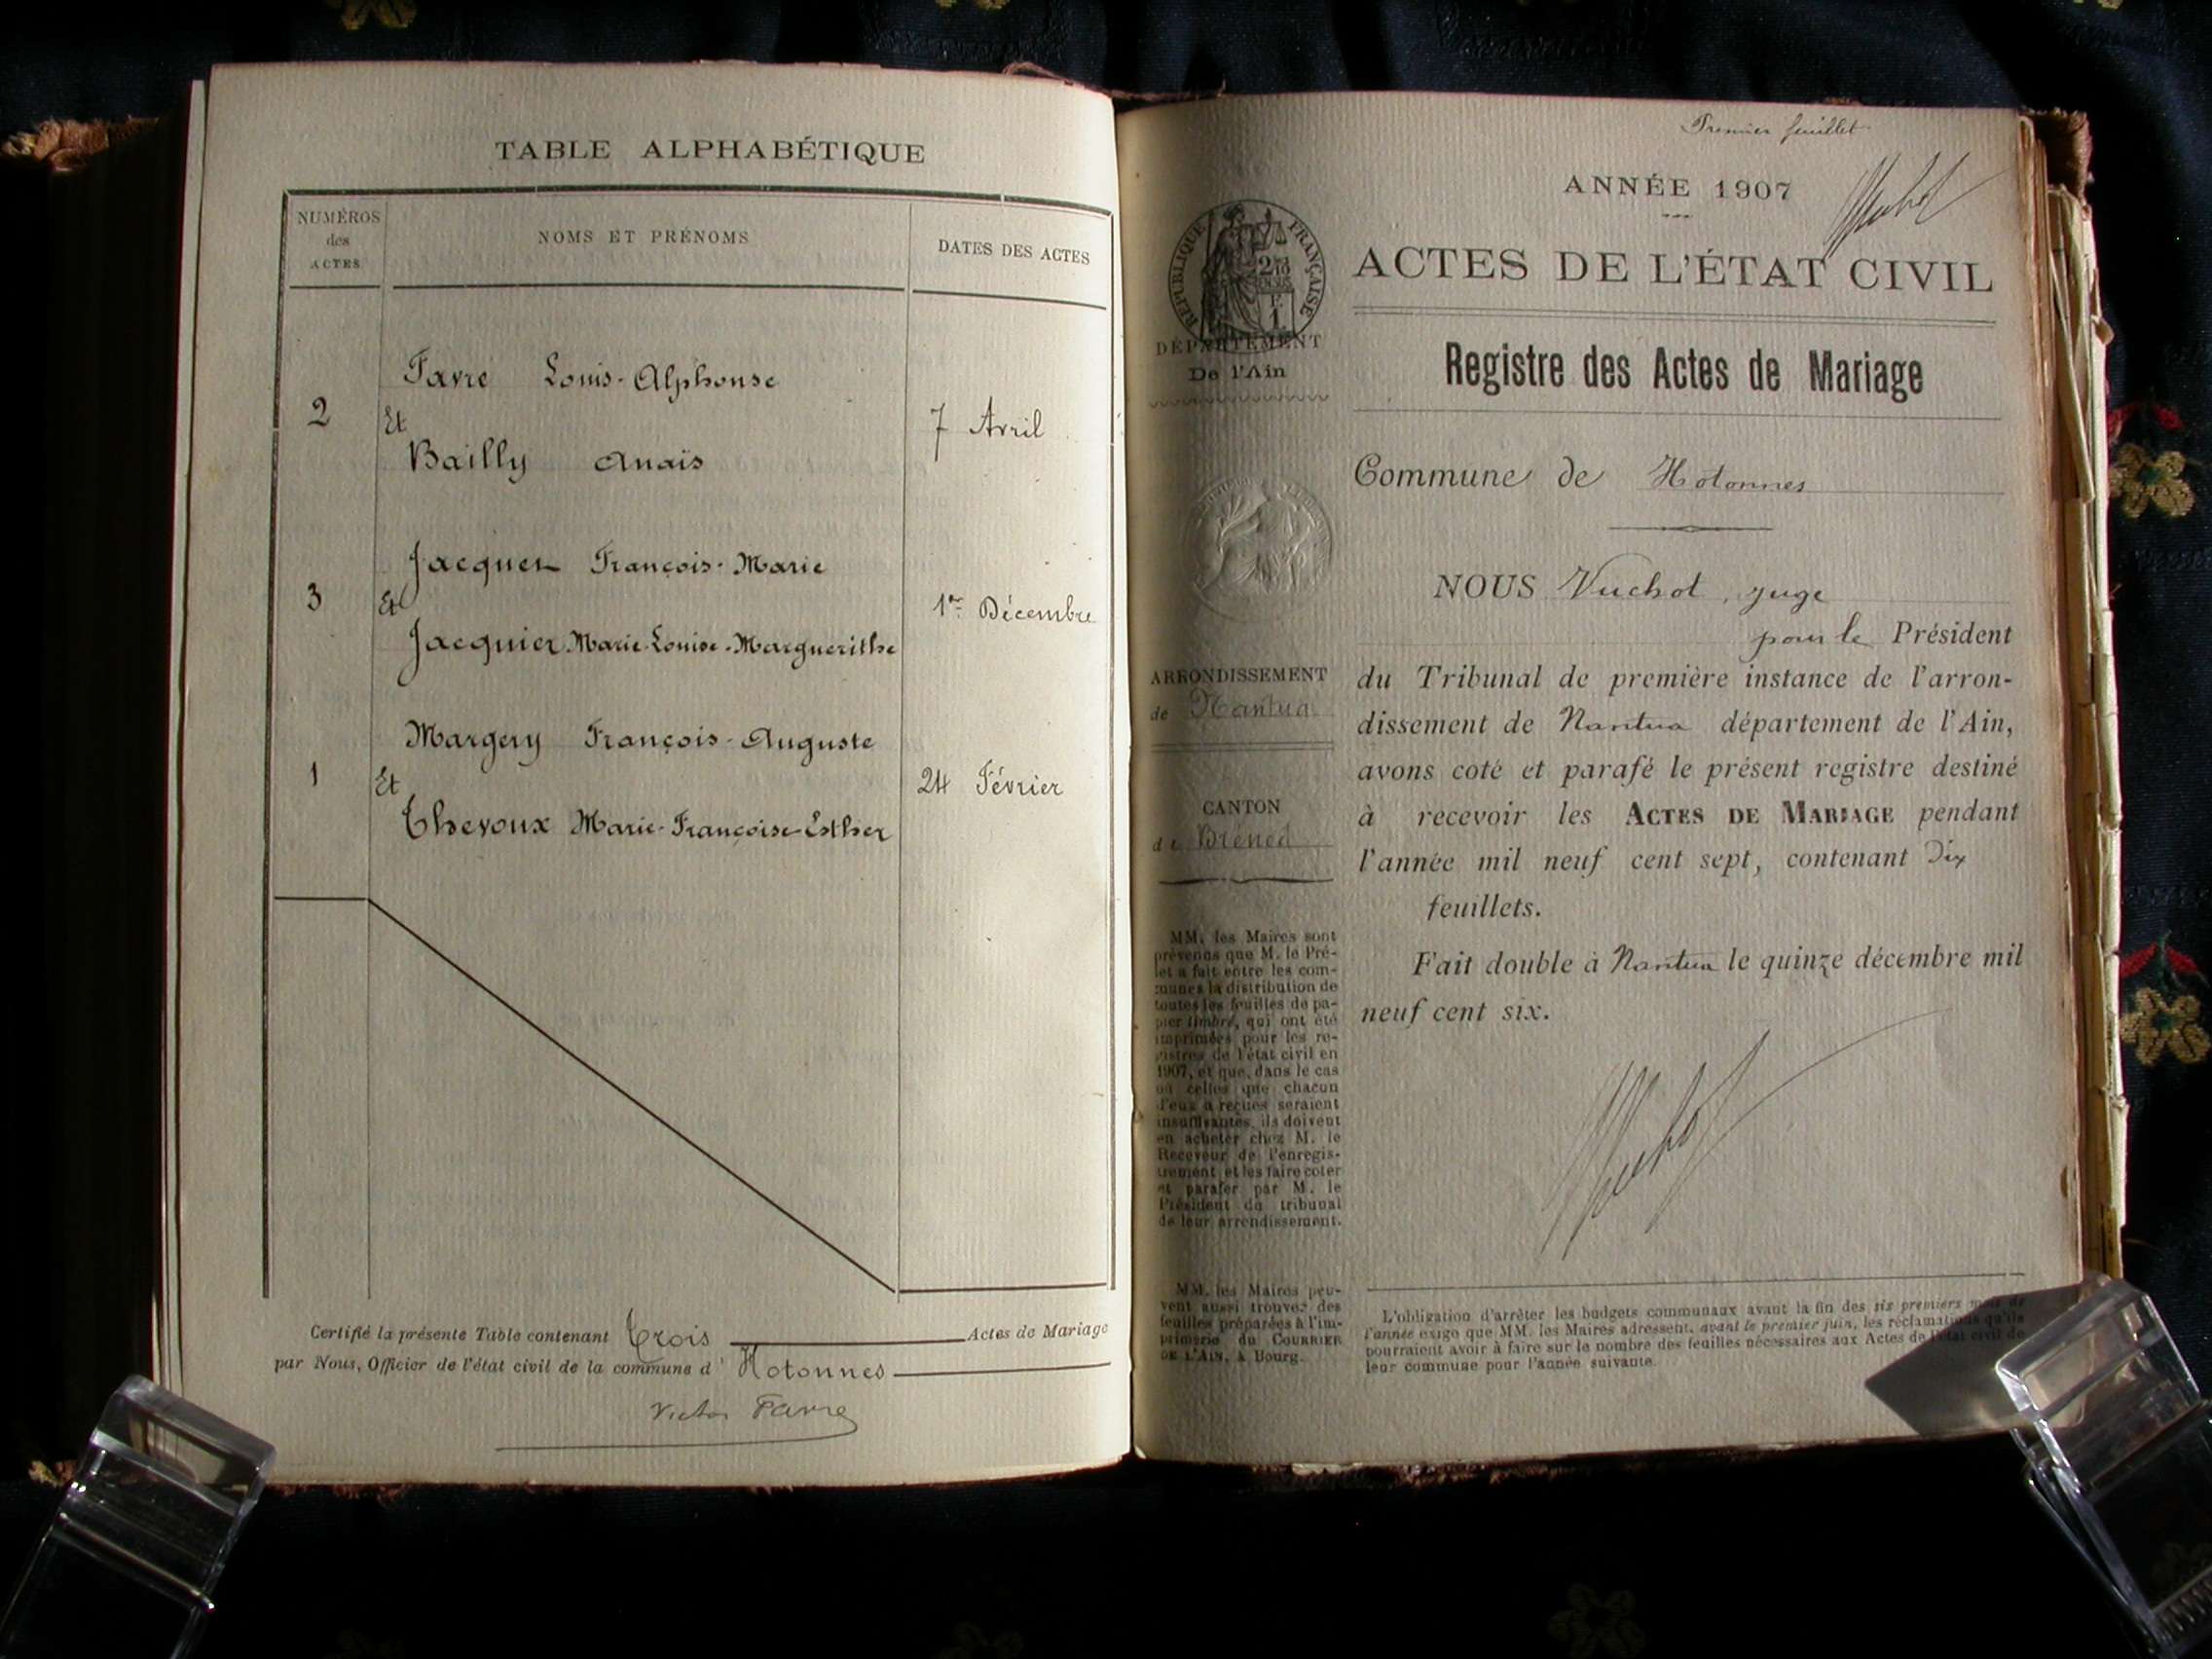 TABLE ALPHABÉTIQUE
NUMÉROS
des
ACTES
NOMS ET PRÉNOMS
DATES DES ACTES
Favre Louis-Alphonse
2
Et
7 Avril
Bailly Anaïs
Jacques François-Marie
3
Et
1er Décembre
Jacquier Marie-Louise-Marguerithe
Margery François-Auguste
1
Et
24 Février
Thevoux Marie-Françoise-Esther
Certifié la présente Table contenant Trois Actes de Mariage
par Nous, Officier de l'état civil de la commune d' Hotonnes
Victor Favre
Premier feuillet
ANNÉE 1907
Vuchot
RÉPUBLIQUE FRANÇAISE
ACTES DE L'ÉTAT CIVIL
DÉPARTEMENT
De l'Ain
Registre des Actes de Mariage
Commune de Hotonnes
NOUS Vuchot, juge
pour le Président
ARRONDISSEMENT
de Nantua
du Tribunal de première instance de l'arron-
dissement de Nantua département de l'Ain,
avons coté et parafé le présent registre destiné
CANTON
de Brénod
à recevoir les ACTES DE MARIAGE pendant
l'année mil neuf cent sept, contenant Dix
feuillets.
Fait double à Nantua le quinze décembre mil
neuf cent six.
Vuchot
MM. les Maires sont
prévenus que M. le Pré-
fet a fait entre les com-
munes la distribution de
toutes les feuilles de pa-
pier timbré, qui ont été
imprimées pour les re-
gistres de l'état civil en
1907, et que, dans le cas
où celles que chacun
d'eux a reçues seraient
insuffisantes, ils doivent
en acheter chez M. le
Receveur de l'enregis-
trement et les faire coter
et parafer par M. le
Président du tribunal
de leur arrondissement.
MM. les Maires peu-
vent aussi trouver des
feuilles préparées à l'im-
primerie du COURRIER
DE L'AIN, à Bourg.
L'obligation d'arrêter les budgets communaux avant la fin des six premiers mois de
l'année exige que MM. les Maires adressent, avant le premier juin, les réclamations qu'ils
pourraient avoir à faire sur le nombre des feuilles nécessaires aux Actes de l'état civil de
leur commune pour l'année suivante.